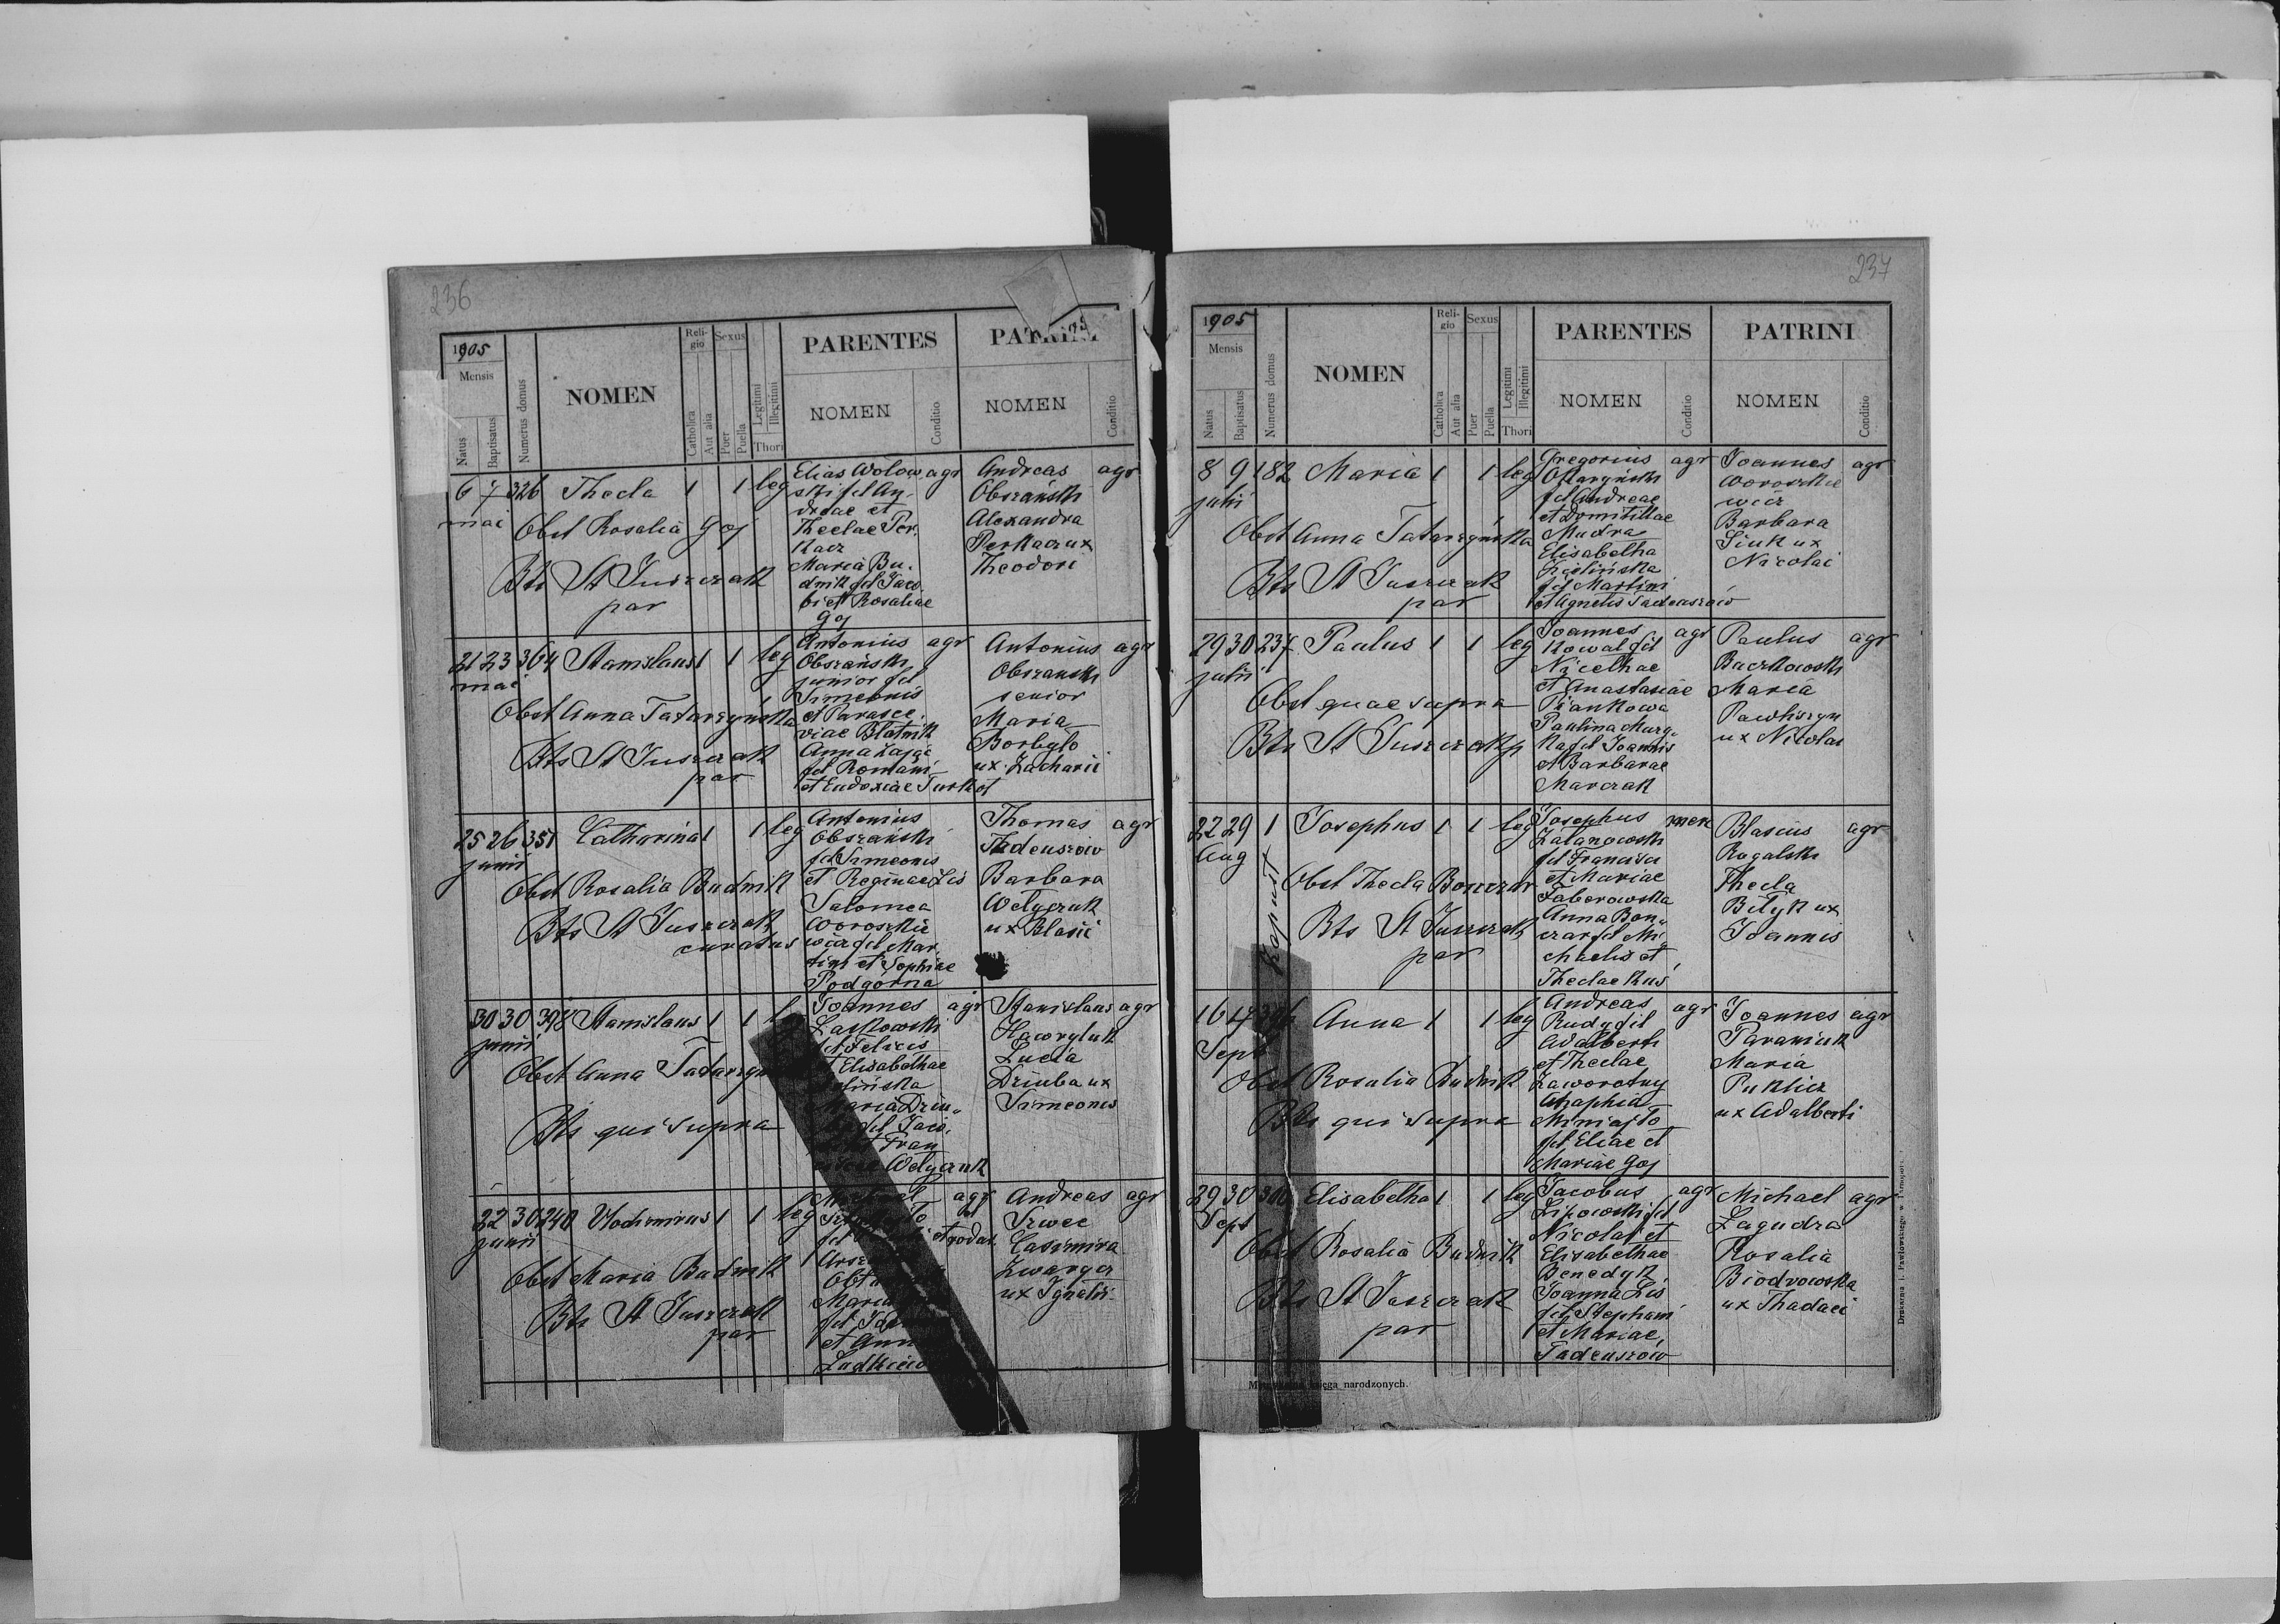 236
1905
Mensis
Natus
Baptisatus
Numerus domus
NOMEN
Religio
Catholica
Aut alia
Sexus
Puer
Puella
Legitimi
Illegitimi
Thori
PARENTES
NOMEN
Conditio
PATRINI
NOMEN
Conditio
6 7 326 Thecla 1 1 leg
mai
Obst Rosalia Goj
Bts St Juszczak
par
Elias Wolow agr
ski fil An-
dreae et
Theclae Per-
kacz
Maria Bu-
dnik fil Jaco
bi et Rosaliae
Goj
Andreas agr
Obszański
Alexandra
Perkacz ux
Theodori
21 23 364 Stanislaus 1 1 leg
mai
Obst Anna Tatarzyńska
Bts St Juszczak
par
Antonius agr
Obszański
junior fil
Simeonis
et Parasce-
viae Blatnik
Anna Zając
fil Romani
et Eudoxiae Turkot
Antonius agr
Obszański
senior
Maria
Borbyło
ux Zacharii
25 26 351 Catharina 1 1 leg
junii
Obst Rosalia Budnik
Bts St Juszczak
curatus
Antonius
Obszański
fil Simeonis
et Reginae Lis
Salomea
Woroszkie
wicz fil Mar
tini et Sophiae
Podgórna
Thomas agr
Tadeuszów
Barbara
Wetyczuk
ux Blasii
30 30 398 Stanislaus 1 1
junii
Obst Anna
Bts qui supra
Joannes agr
Laskowski
fil Felicis
et Elisabethae
Maria Dziu-
fil Jaco
Fran
Wetyczuk
Stanislaus agr
Hawryluk
Lucia
Dziuba ux
Simeonis
22 30 240 Vlodimirus 1 1 leg
junii
Obst Maria Budnik
Bts St Juszczak
par
Michael agr
fil
Maria
fil
et Ann
Andreas agr
Szwec
Casimira
Zwarycz
ux Ignatii
237
1905
Mensis
Natus
Baptisatus
Numerus domus
NOMEN
Religio
Catholica
Aut alia
Sexus
Puer
Puella
Legitimi
Illegitimi
Thori
PARENTES
NOMEN
Conditio
PATRINI
NOMEN
Conditio
8 9 182 Maria 1 1 leg
julii
Obst Anna Tatarzyńska
Bts St Juszczak
par
Gregorius agr
fil Andreae
et Domitillae
Mudra
Elisabetha
Zielińska
fil Martini
et Agnetis Tadeuszów
Joannes agr
Woroszkie
wicz
Barbara
Siuk ux
Nicolai
29 30 237 Paulus 1 1 leg
julii
Obst quae supra
Bts St Juszczak p
Joannes agr
Kowal fil
Nicethae
et Anastasiae
Piankowa
Paulina Murg-
ka fil Joannis
et Barbarae
Marczak
Paulus agr
Buczkowski
Maria
Pawliszyn
ux Nicolai
22 29 1 Josephus 1 1 leg
Aug
Obst Thecla Bonczar
Bts St Juszczak
par
Josephus
Zatanowski
fil Francisci
et Mariae
Taborowska
Anna Bon-
czar fil Mi-
chaelis et
Theclae Kus
Blasius agr
Rogalski
Thecla
Bilyk ux
Joannis
16 17 Anna 1 1 leg
Sept
Obst Rosalia Budnik
Bts qui supra
Andreas agr
Rudy fil
Adalberti
et Theclae
Zaworotny
Agaphia
Miniajło
fil Eliae et
Mariae Goj
Joannes agr
Paraniuk
Maria
Puklicz
ux Adalberti
29 30 300 Elisabetha 1 1 leg
Sept
Obst Rosalia Budnik
Bts St Juszczak
par
Jacobus agr
Lipowski fil
Nicolai et
Elisabethae
Benedyk
Joanna Lis
fil Stephani
et Mariae
Tadeuszów
Michael agr
Zagudra
Rosalia
Biodrowska
ux Thadaei
księga narodzonych.